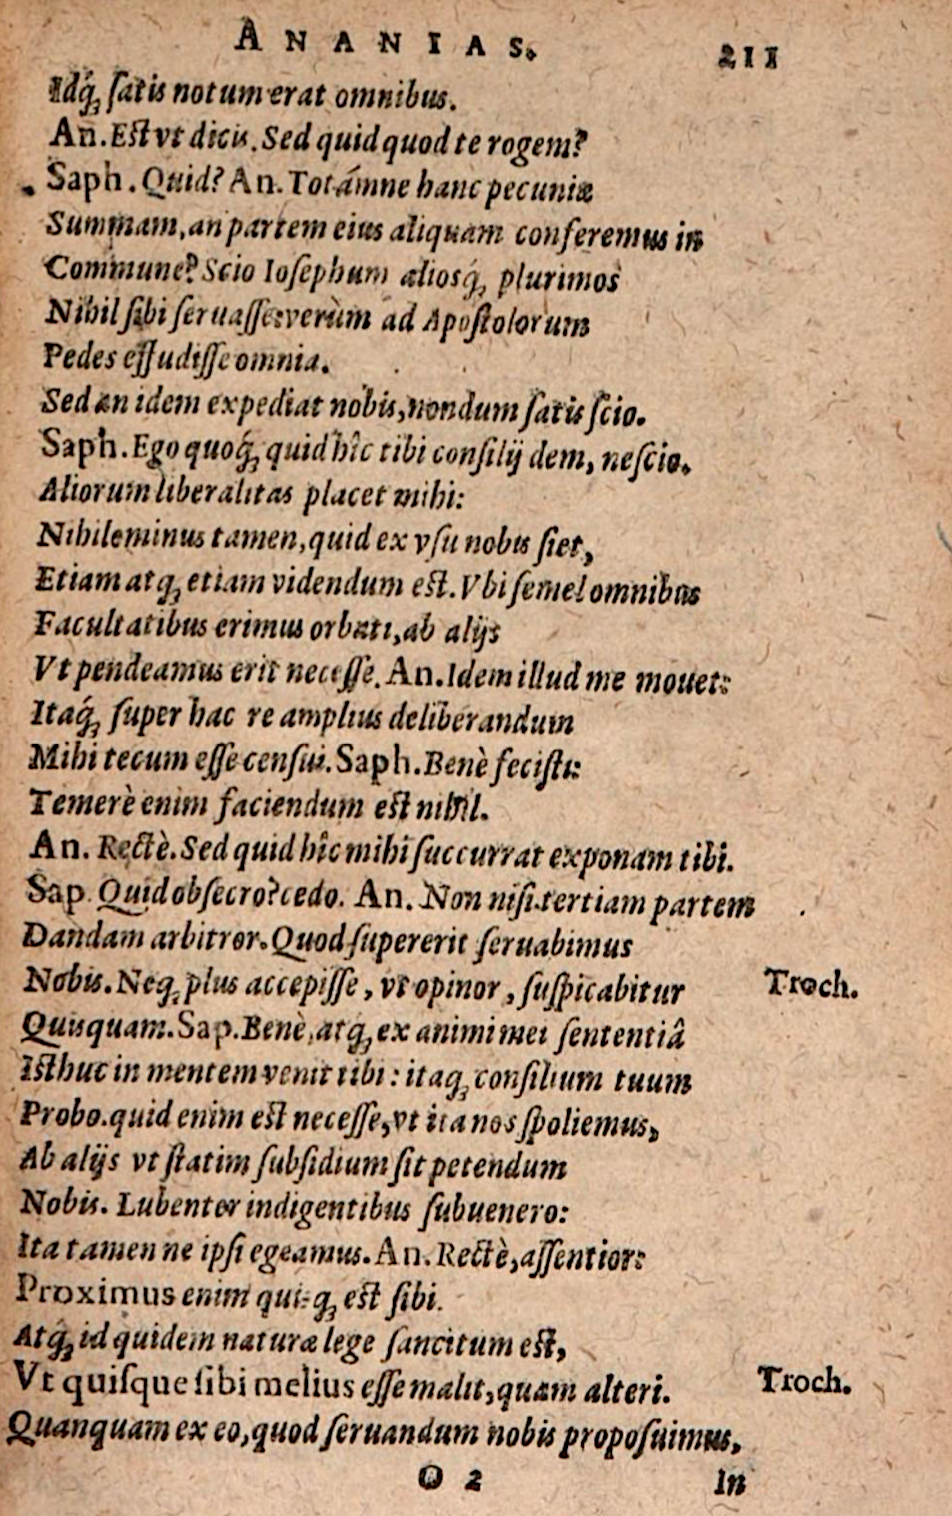 ANANIAS. 211
Idq́ꝫ ſatis notum erat omnibus.
An. Eſt vt dicis. Sed quid quod te rogem?
Saph. Quid? An. Totámne hanc pecuniæ
Summam, an partem eius aliquam conferemus in
Commune? Scio Ioſephum aliosq́ꝫ plurimos
Nihil ſibi ſeruaſſe: verùm ad Apoſtolorum
Pedes effudiſſe omnia.
Sed an idem expediat nobis, nondum ſatis ſcio.
Saph. Ego quoq́ꝫ quid hîc tibi conſilij dem, neſcio.
Aliorum liberalitas placet mihi:
Nihileminus tamen, quid ex vſu nobis fiet,
Etiam atqꝫ etiam videndum eſt. Vbi ſemel omnibus
Facultatibus erimus orbati, ab alijs
Vt pendeamus erit neceſſe. An. Idem illud me mouet:
Itaq́ꝫ ſuper hac re amplius deliberandum
Mihi tecum eſſe cenſui. Saph. Benè feciſti:
Temerè enim faciendum eſt nihil.
An. Rectè. Sed quid hîc mihi ſuccurrat exponam tibi.
Sap. Quid obſecro? cedo. An. Non niſi tertiam partem
Dandam arbitror. Quod ſupererit ſeruabimus
Nobis. Neqꝫ plus accepiſſe, vt opinor, ſuſpicabitur Troch.
Quiſquam. Sap. Benè, atqꝫ ex animi mei ſententiâ
Iſthuc in mentem venit tibi: itaqꝫ conſilium tuum
Probo. quid enim eſt neceſſe, vt ita nos ſpoliemus,
Ab alijs vt ſtatim ſubſidium ſit petendum
Nobis. Lubenter indigentibus ſubuenero:
Ita tamen ne ipſi egeamus. An. Rectè, aſſentior:
Proximus enim quiſqꝫ eſt ſibi.
Atq́ꝫ id quidem naturæ lege ſancitum eſt,
Vt quiſque ſibi melius eſſe malit, quam alteri. Troch.
Quanquam ex eo, quod ſeruandum nobis propoſuimus,
O 2 In